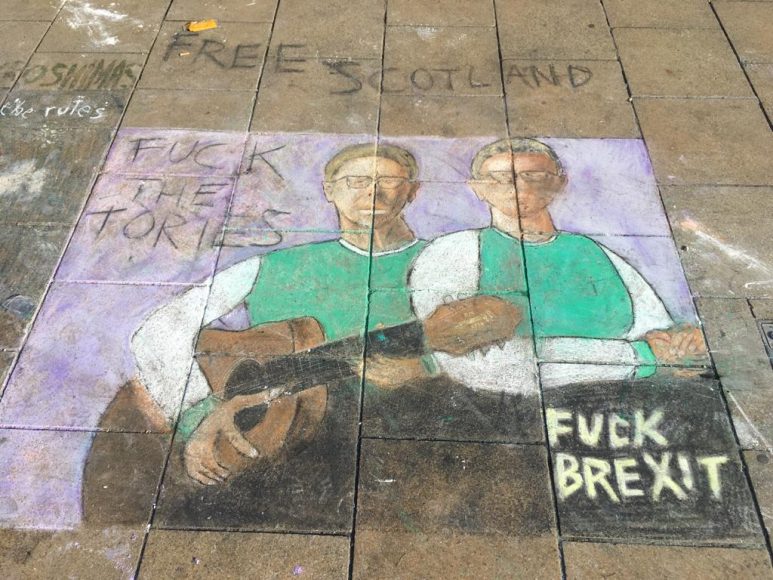 FREE SCOTLAND
OSHIMAS
the rules
FUCK
THE
TORIES
FUCK
BREXIT